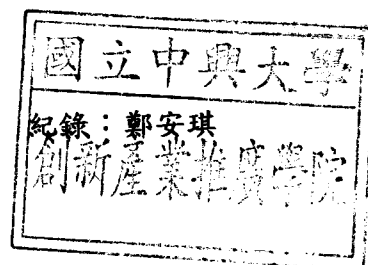 國立中興大學
紀錄：鄭安琪
創新產業推廣學院